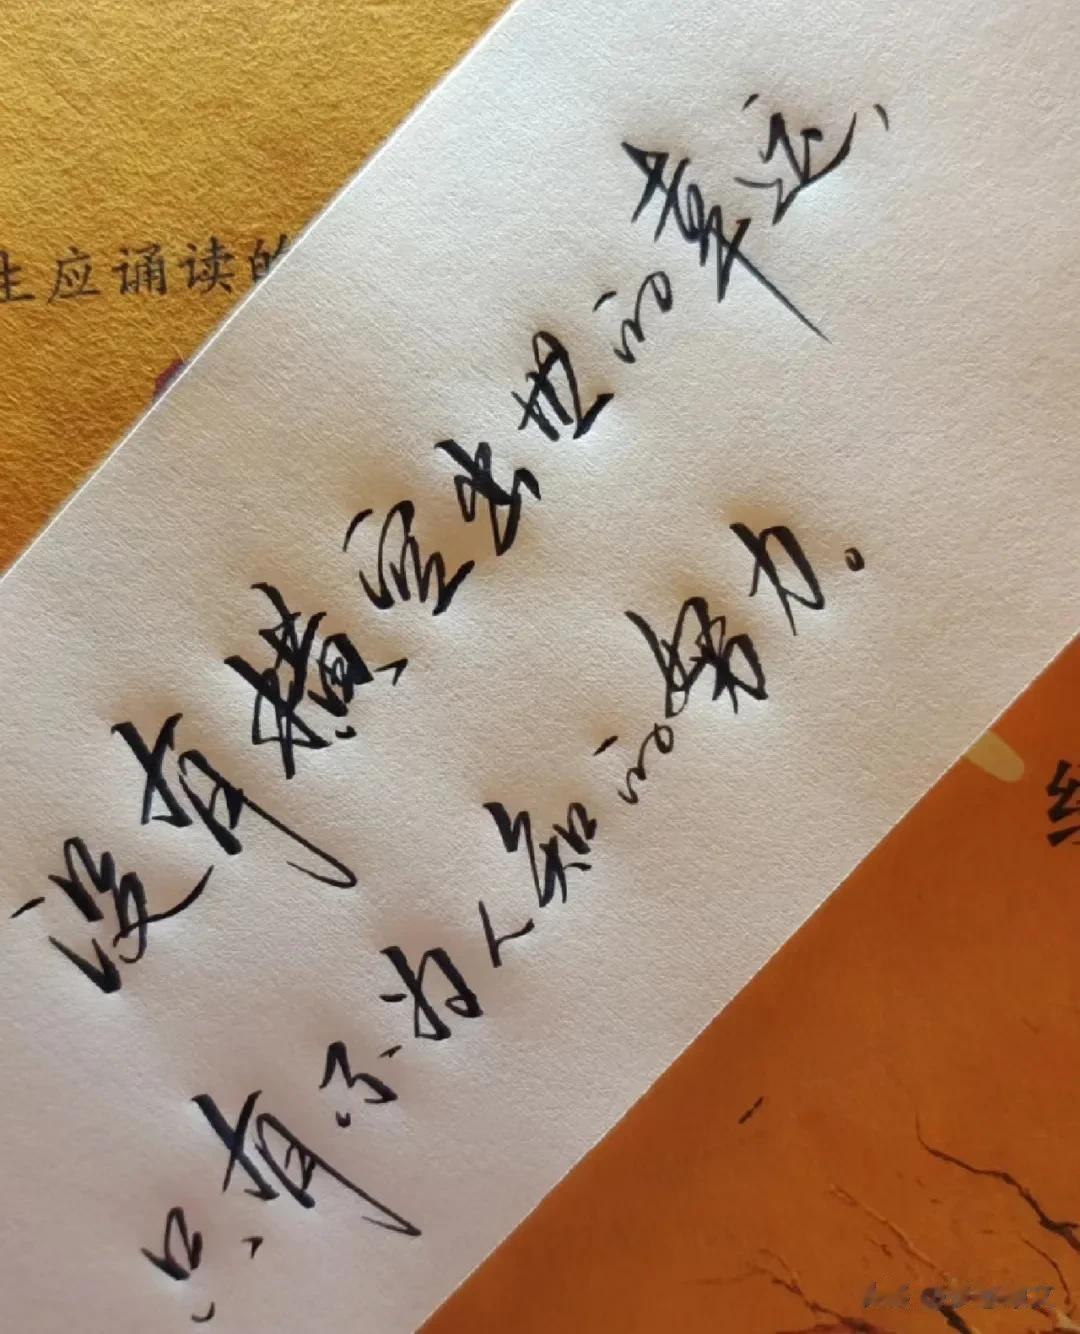 生应诵读的
没有横空出世的幸运、
只有不为人知的努力。